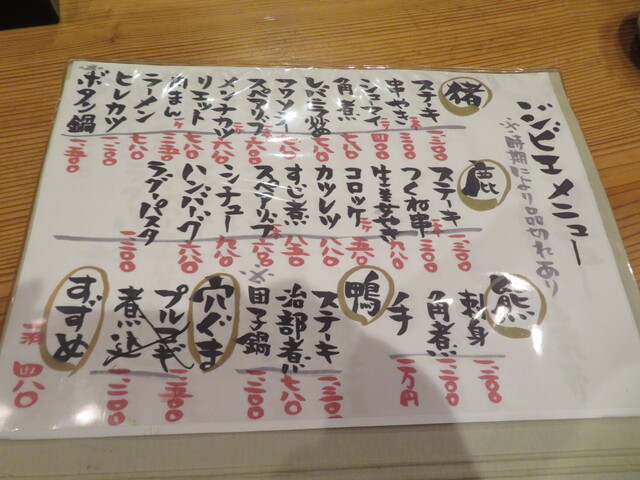 ジビエメニュー
※時期により品切れあり
猪
ステーキ 一、三〇〇
串やき 一本 三〇〇
シューマイ 一ケ 四〇〇
角煮 七八〇
レバニラ炒め 七八〇
スペアリブ 一ケ 六八〇
メンチカツ 一ケ 六八〇
リエット 七八〇
肉まん 一ケ 三五〇
ラーメン 七八〇
ヒレカツ 一、二〇〇
※ボタン鍋 一、三〇〇
鹿
ステーキ 一、三〇〇
つくね串 一本 三〇〇
生姜やき 九八〇
コロッケ 一ケ 三五〇
カツレツ 八八〇
すじ煮 八八〇
スペアリブ 一本 六八〇
シチュー 九八〇
ハンバーグ 六八〇
ラグーパスタ 一、二〇〇
熊
刺身 一、二〇〇
角煮 一、二〇〇
手 一万円
鴨
ステーキ
治部煮 七八〇
※団子鍋 一、二〇〇
穴ぐま
煮込 一、二〇〇
すずめ
一羽 四八〇